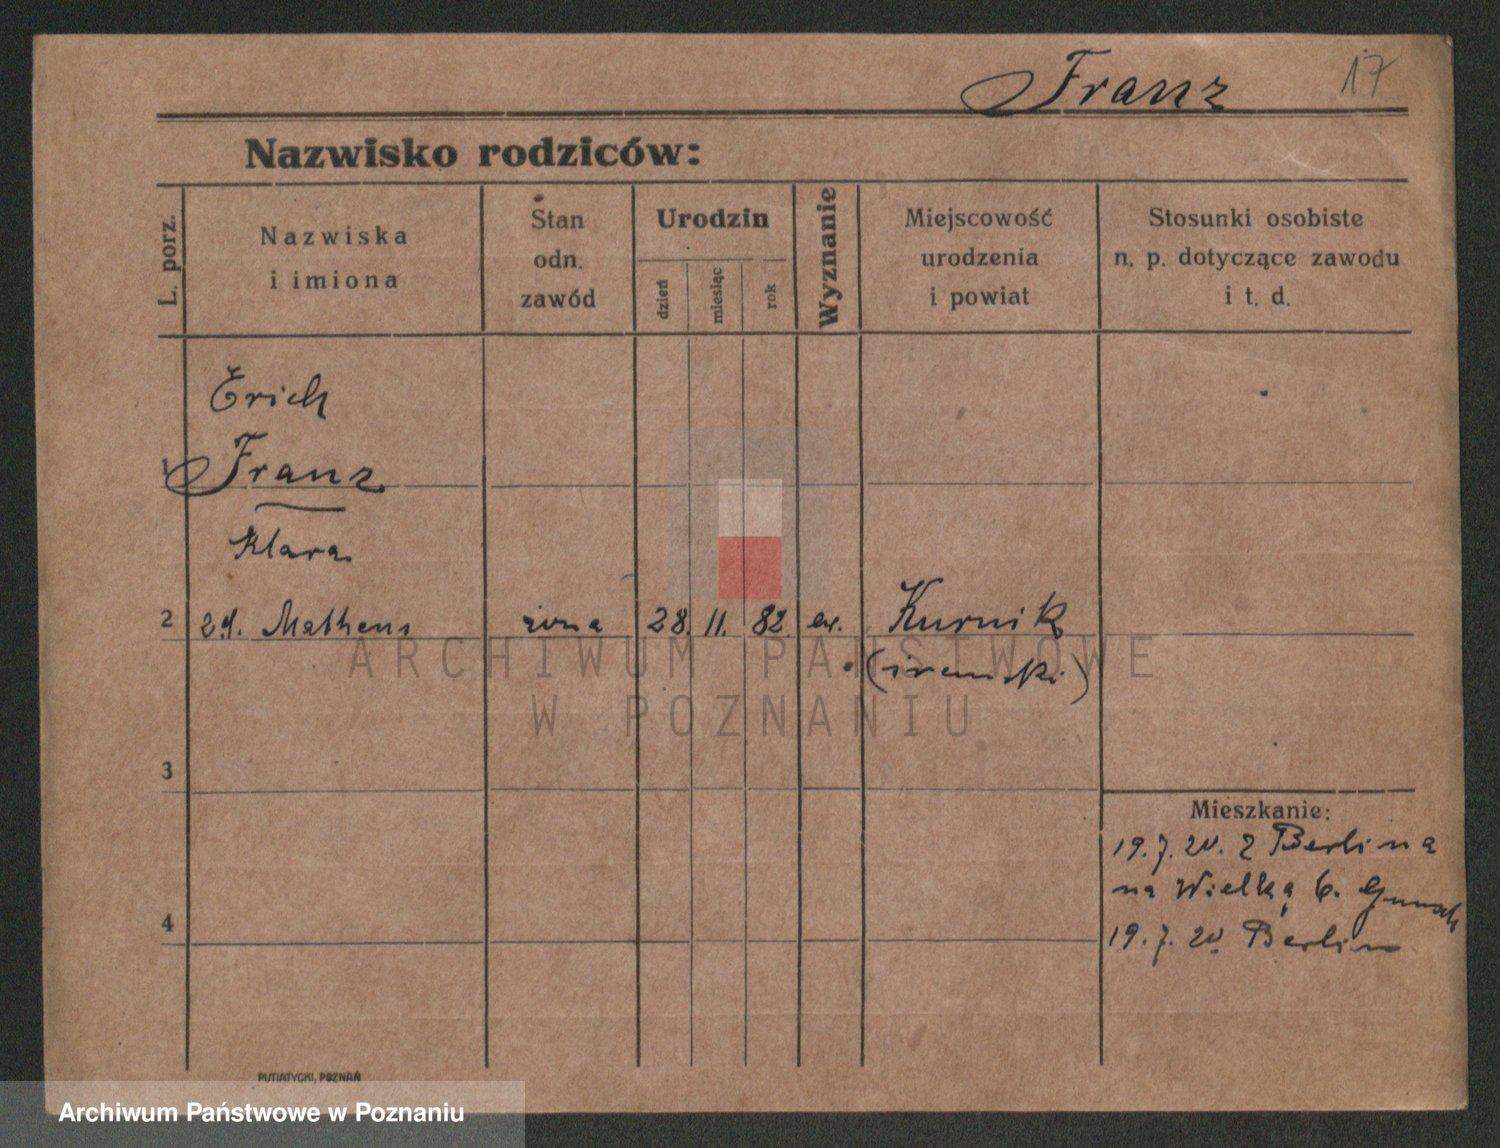 Franz 17
Nazwisko rodziców:
L. porz.
Nazwiska
i imiona
Stan
odn.
zawód
Urodzin
dzień
miesiąc
rok
Wyznanie
Miejscowość
urodzenia
i powiat
Stosunki osobiste
n. p. dotyczące zawodu
i t. d.
Erich
1 Franz
Klara
2 zd. Matheus żona 28. 11. 82. ew. Kurnik
(śremski)
ARCHIWUM PAŃSTWOWE
W POZNANIU
3
Mieszkanie:
19.7.20. z Berlina
na Wielką 6.
4
19.7.20 Berlin
PUTIATYCKI, POZNAŃ
Archiwum Państwowe w Poznaniu